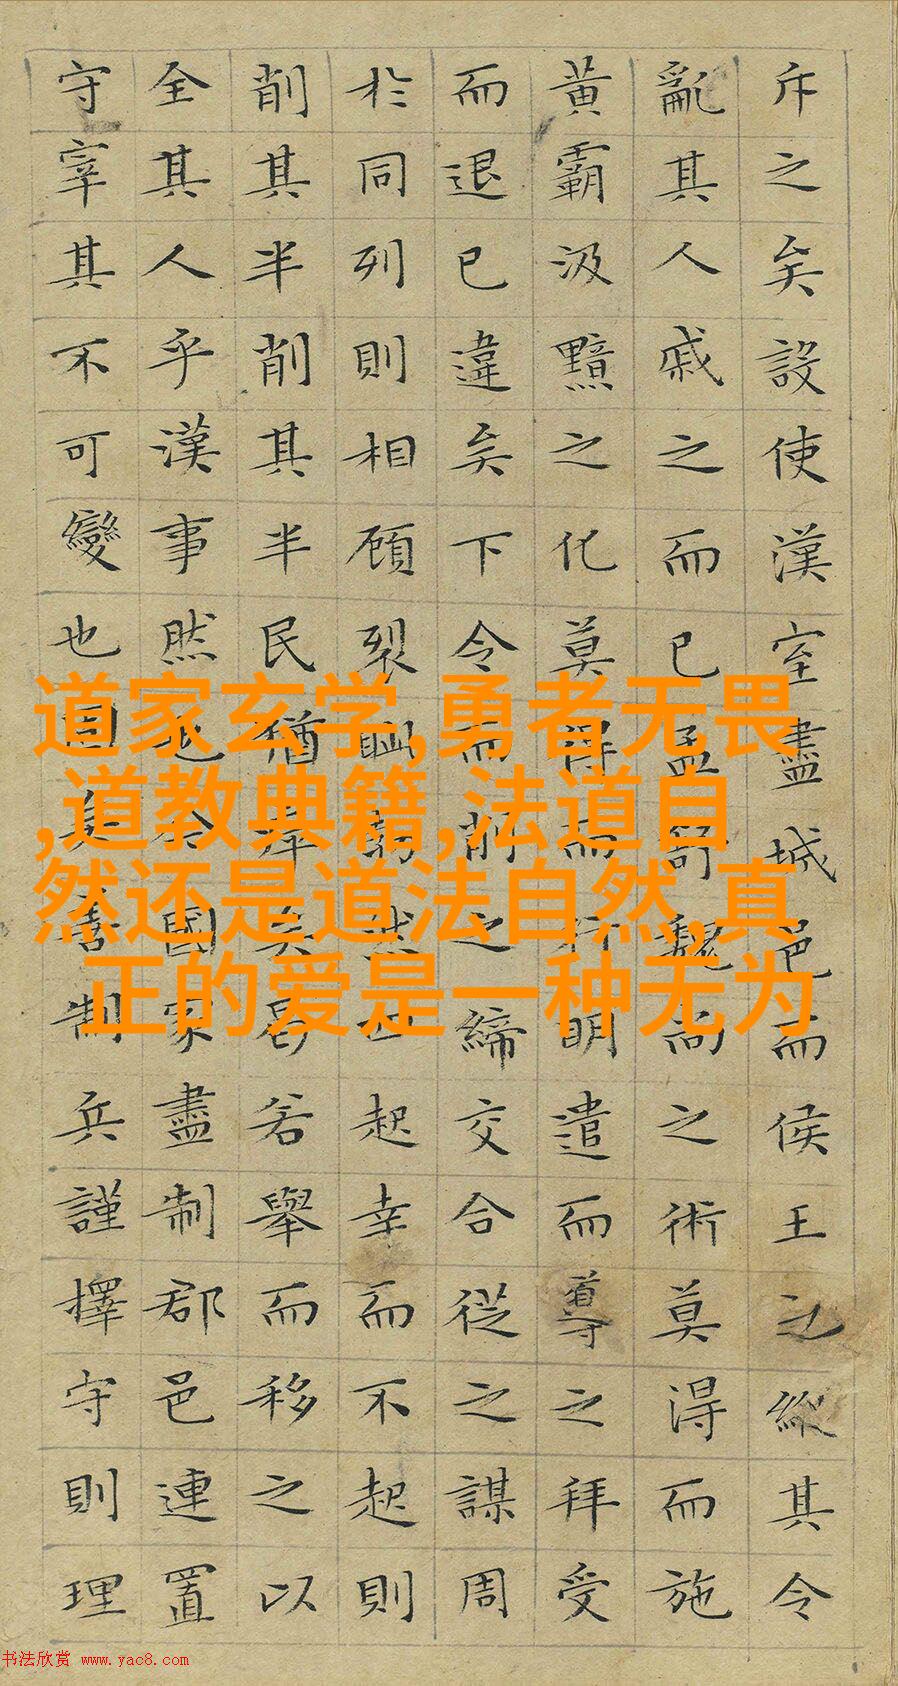 斥之矣設使漢室盡城邑而侯王之縱其令
亂其人戚之而已孟舒魏尚之術莫得而施
黃霸汲黯之化莫得而行明遣而導之拜受
而退已違矣下令而削之締交合從之謀周
於同列則相顧裂眦勃然而起幸而不起則
削其半削其半民猶瘁矣曷若舉而移之以
全其人乎漢事然也今國家盡制郡邑連置
守宰其不可變也固矣善制兵謹擇守則理
道家玄学,勇者无畏
,道教典籍,法道自
然还是道法自然,真
正的爱是一种无为
书法欣赏 www.yac8.com